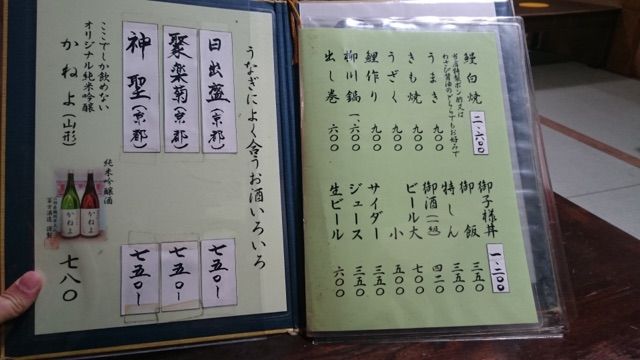 鰻白焼 二、六〇〇
当店特製ポン酢又は
わさび醤油のどちらでもお好みで
うまき 九〇〇
きも焼 九〇〇
うざく 九〇〇
鯉作り 九〇〇
柳川鍋 一、六〇〇
出し巻 六〇〇
御子様丼 一、二〇〇
御飯 三五〇
特しん 三五〇
御酒(一級) 四二〇
ビール大 七〇〇
小 五〇〇
サイダー 三五〇
ジュース 三五〇
生ビール 六〇〇
うなぎによく合うお酒いろいろ
日出盛(京都) 七五〇〜
聚楽菊(京都) 七五〇〜
神聖(京都) 七五〇〜
ここでしか飲めない
オリジナル純米吟醸
かねよ(山形) 七八〇
純米吟醸酒
かねよ
かねよ